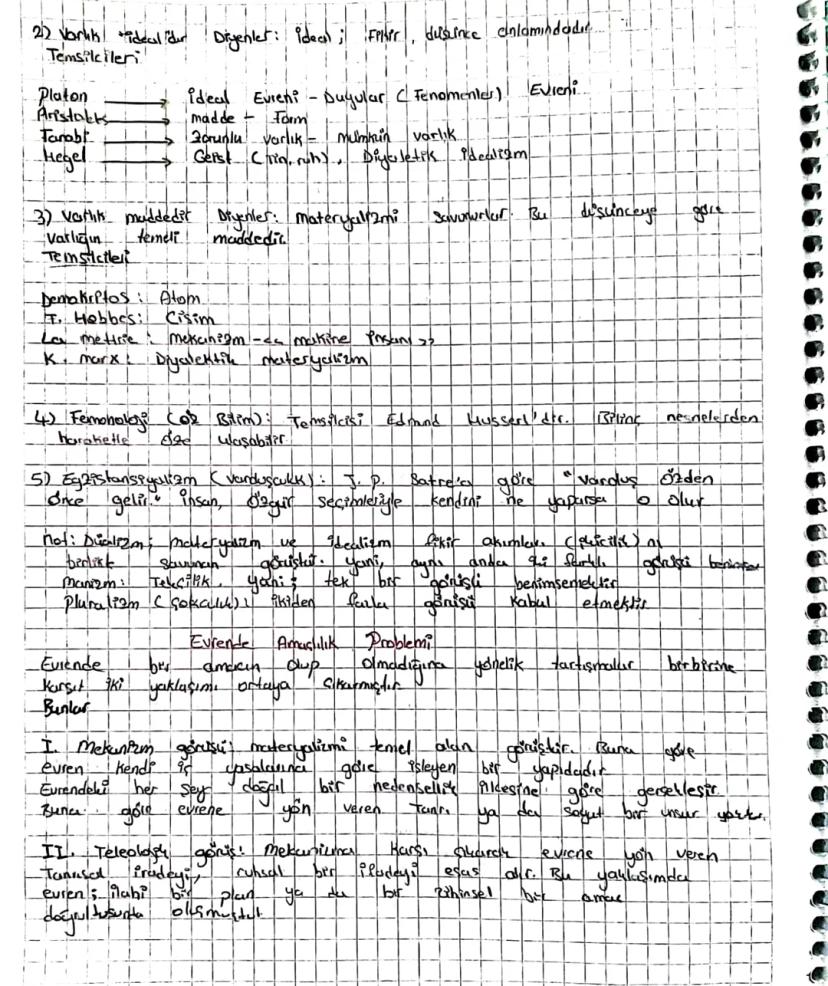 2) Varlık "idea"dır Diyenler: ideal; Fikir, düşünce anlamındadır.
Temsilcileri
Platon → ideal Evreni - Duyular (Fenomenler) Evreni
Aristoteles → madde - Form
Farabi → Zorunlu varlık - mümkün varlık
Hegel → Geist (tin, ruh), Diyalektik idealizm
3) Varlık maddedir Diyenler: materyalizmi savunurlar. Bu düşünceye göre
varlığın temeli maddedir.
Temsilcileri
Demokritos: Atom
T. Hobbes: Cisim
La mettrie: mekanizm - << makine insan >>
K. marx: Diyalektik materyalizm
4) Femonoloji (öz Bilim): Temsilcisi Edmund Husserl'dir. Bilinç nesnelerden
hareketle öze ulaşabilir.
5) Egzistansiyalizm (varoluşculuk): J. P. Satre'a göre "varoluş özden
önce gelir." insan, özgür seçimleriyle kendini ne yaparsa o olur
not: Düalizm; materyalizm ve idealizm fikir akımları (ikicilik) nı
birlikte savunan görüştür. yani, aynı anda iki farklı görüşü benimser
monizm: Tekçilik, yani; tek bir görüşü benimsemektir
Pluralizm (Çokculuk): ikiden fazla görüşü kabul etmektir
Evrende Amaçlılık Problemi
Evrende bir amacın olup olmadığına yönelik tartışmalar birbirine
karşıt iki yaklaşımı ortaya çıkarmıştır.
Bunlar
I. Mekanizm görüşü; materyalizmi temel alan görüştür. Buna göre
evren kendi iç yasalarına göre işleyen bir yapıdadır
Evrendeki her şey doğal bir nedensellik ilkesine göre gerçekleşir.
Buna göre evrene yön veren Tanrı ya da soyut bir unsur yoktur.
II. Teleolojik görüş: mekanizma karşı çıkarak evrene yön veren
Tanrısal iradeyi, ruhsal bir iradeyi esas alır. Bu yaklaşımda
evren; ilahi bir plan ya da bir zihinsel bir amaç
doğrultusunda oluşmuştur.